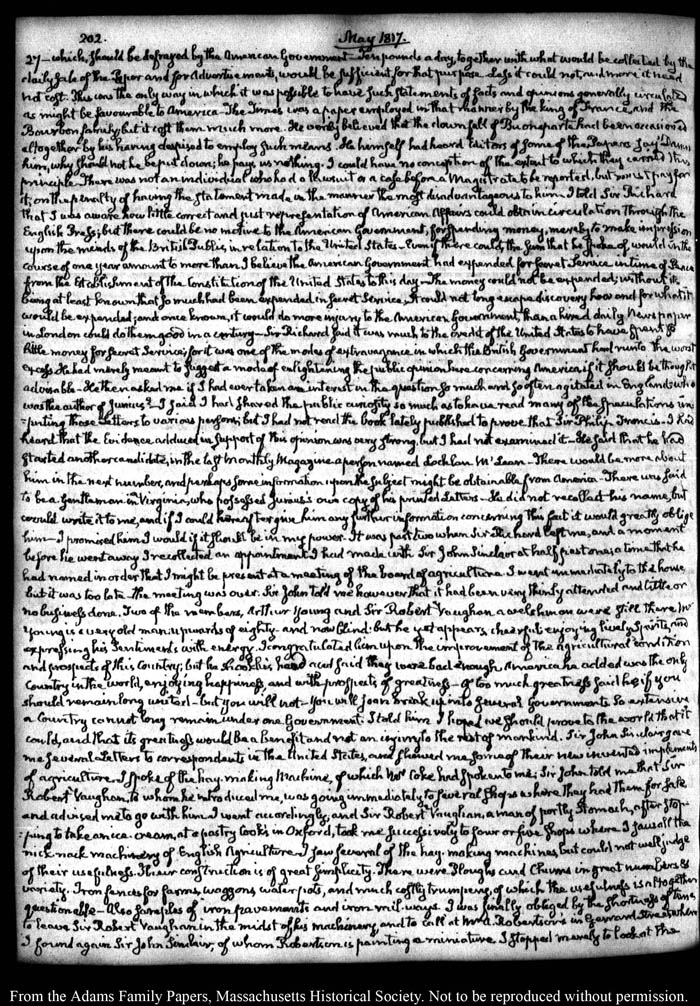 202.
May 1817.
27 — which should be defrayed by the American Government — Ten pounds a day, together with what would be collected by the
daily sale of the Paper and for Advertisements, would be sufficient for that purpose. Less it could not, and more it need
not cost. This was the only way in which it was possible to have such statements of facts and opinions generally circulated
as might be favourable to America — The Times was a paper employed in that manner by the king of France, and the
Bourbon family; but it cost them much more. He verily believed that the downfall of Buonaparte had been occasioned
altogether by his having despised to employ such means. He himself had heard Editors of some of the Papers say
him, why should not he be put down; he pays us nothing. I could have no conception of the extent to which they carried this
principle. There was not an individual who had a lawsuit or a case before a Magistrate to be reported, but must pay for
it, on the penalty of having the statement made in the manner the most disadvantageous to him. I told Sir Richard
that I was aware how little correct and just representation of American Affairs could obtain circulation through the
English Press; but there could be no motive to the American Government, for spending money, merely to make impression
upon the minds of the British Public, in relation to the United States — Even if there could, the sum that he spoke of, would in the
course of one year amount to more than I believe the American Government had expended for secret service in time of Peace
from the Establishment of the Constitution of the United States to this day — The money could not be expended, without its
being at least known that so much had been expended in secret service, it could not long escape discovery how and for what it
would be expended; and once known, it would do more injury to the American Government, than a hired daily Newspaper
in London could do them good in a century — Sir Richard said it was much to the credit of the United States to have spent so
little money for secret service; for it was one of the modes of extravagance in which the British Government had run to the worst
excess. He had merely meant to suggest a mode of enlightening the public opinion here concerning America, if it should be thought
advisable — He then asked me if I had ever taken an interest in the question so much and so often agitated in England; who
was the author of Junius? — I said I had shared the public curiosity so much as to have read many of the speculations im-
-puting those Letters to various persons; but I had not read the book lately published to prove that Sir Philip Francis — I had
heard that the Evidence adduced in support of this opinion was very strong, but I had not examined it — He said that he had
started another candidate, in the last Monthly Magazine a person named Lochlan McLean — There would be more about
him in the next number, and perhaps some information upon the subject might be obtainable from America — There was said
to be a Gentleman in Virginia, who possessed Junius's own copy of his printed Letters — He did not recollect his name, but
would write it to me, and if I could hereafter give him any further information concerning this fact it would greatly oblige
him — I promised him I would if it should be in my power. It was past two when Sir Richard left me, and a moment
before he went away I recollected an appointment I had made with Sir John Sinclair at half past one; a time that he
had named in order that I might be present at a meeting of the board of agriculture. I went immediately to the house
but it was too late. The meeting was over. Sir John told me however that it had been very thinly attended and little or
no business done. Two of the members, Arthur Young and Sir Robert Vaughan a welshman were still there. Mr
Young is a very old man, upwards of eighty and now blind: but he yet appears, cheerful enjoying lively spirits, and
expressing his sentiments with energy. I congratulated him upon the improvement of the agricultural condition
and prospects of this Country; but he shook his head and said they were bad enough. America he added was the only
Country in the world, enjoying happiness, and with prospects of greatness — of too much greatness said he; if you
should remain long united — but you will not — You will soon break up into several Governments. So extensive
a Country cannot long remain under one Government. I told him I hoped we should prove to the world that it
could, and that its greatness would be a benefit and not an injury to the rest of mankind. Sir John Sinclair gave
me several Letters to correspondents in the United States, and showed me some of their new invented implements
of agriculture. I spoke of the hay-making Machine, of which Mr Coke had spoken to me; Sir John told me that Sir
Robert Vaughan, to whom he introduced me, was going immediately to several shops where they had them for sale
and advised me to go with him. I went accordingly, and Sir Robert Vaughan, a man of portly stomach, after stop-
-ping to take an ice cream, at a pastry Cooks in Oxford, took me successively to four or five shops where I saw all the
nick nack machinery of English Agriculture. I saw several of the hay making machines, but could not well judge
of their usefulness. Their construction is of great simplicity. There were Ploughs and Churns in great numbers &
variety. Iron fences for farms, waggons, water pots, and much costly trumpery, of which the usefulness is altogether
questionable — Also samples of iron pavements and iron rail-ways. I was finally obliged by the shortness of time
to leave Sir Robert Vaughan in the midst of his machinery, and to call at Mr A. Robertson's in Gerrard Street where
I found again Sir John Sinclair, of whom Robertson is painting a miniature. I stopped merely to look at the
From the Adams Family Papers, Massachusetts Historical Society. Not to be reproduced without permission